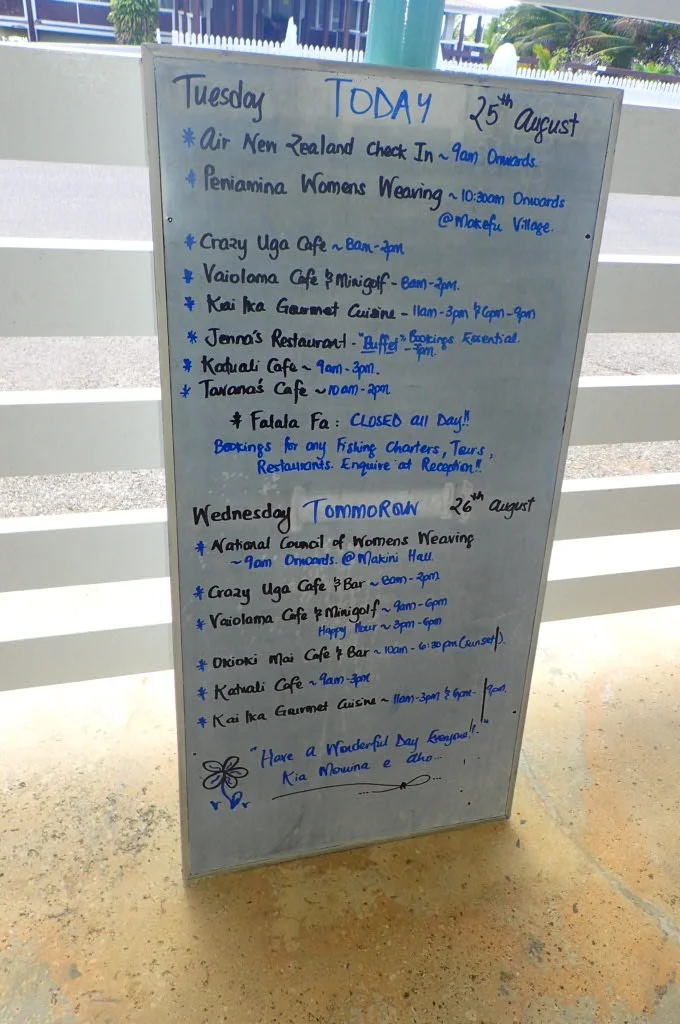 Tuesday TODAY 25th August
* Air New Zealand Check In ~ 9am Onwards.
* Peniamina Womens Weaving ~ 10:30am Onwards
@Makefu Village.
* Crazy Uga Cafe ~ 8am-2pm
* Vaiolama Cafe & Minigolf - 8am-2pm.
* Kai Ika Gourmet Cuisine - 11am-3pm & 6pm-9pm
* Jenna's Restaurant - "Buffet" Bookings Essential.
- 7pm.
* Katuali Cafe ~ 9am-3pm.
* Tavana's Cafe ~ 10am-2pm
* Falala Fa: CLOSED all Day!!
Bookings for any Fishing Charters, Tours,
Restaurants. Enquire at Reception!!
Wednesday TOMMOROW 26th August
* National Council of Womens Weaving
~ 9am Onwards. @Makini Hall.
* Crazy Uga Cafe & Bar ~ 8am-2pm
* Vaiolama Cafe & Minigolf ~ 9am-6pm
Happy Hour ~ 3pm-6pm
* Okioki Mai Cafe & Bar ~ 10am-6:30pm (sunset).
* Katuali Cafe ~ 9am-3pm
* Kai Ika Gourmet Cuisine ~ 11am-3pm & 6pm-9pm.
"Have a Wonderful Day Everyone!!"
Kia Monuina e Aho...